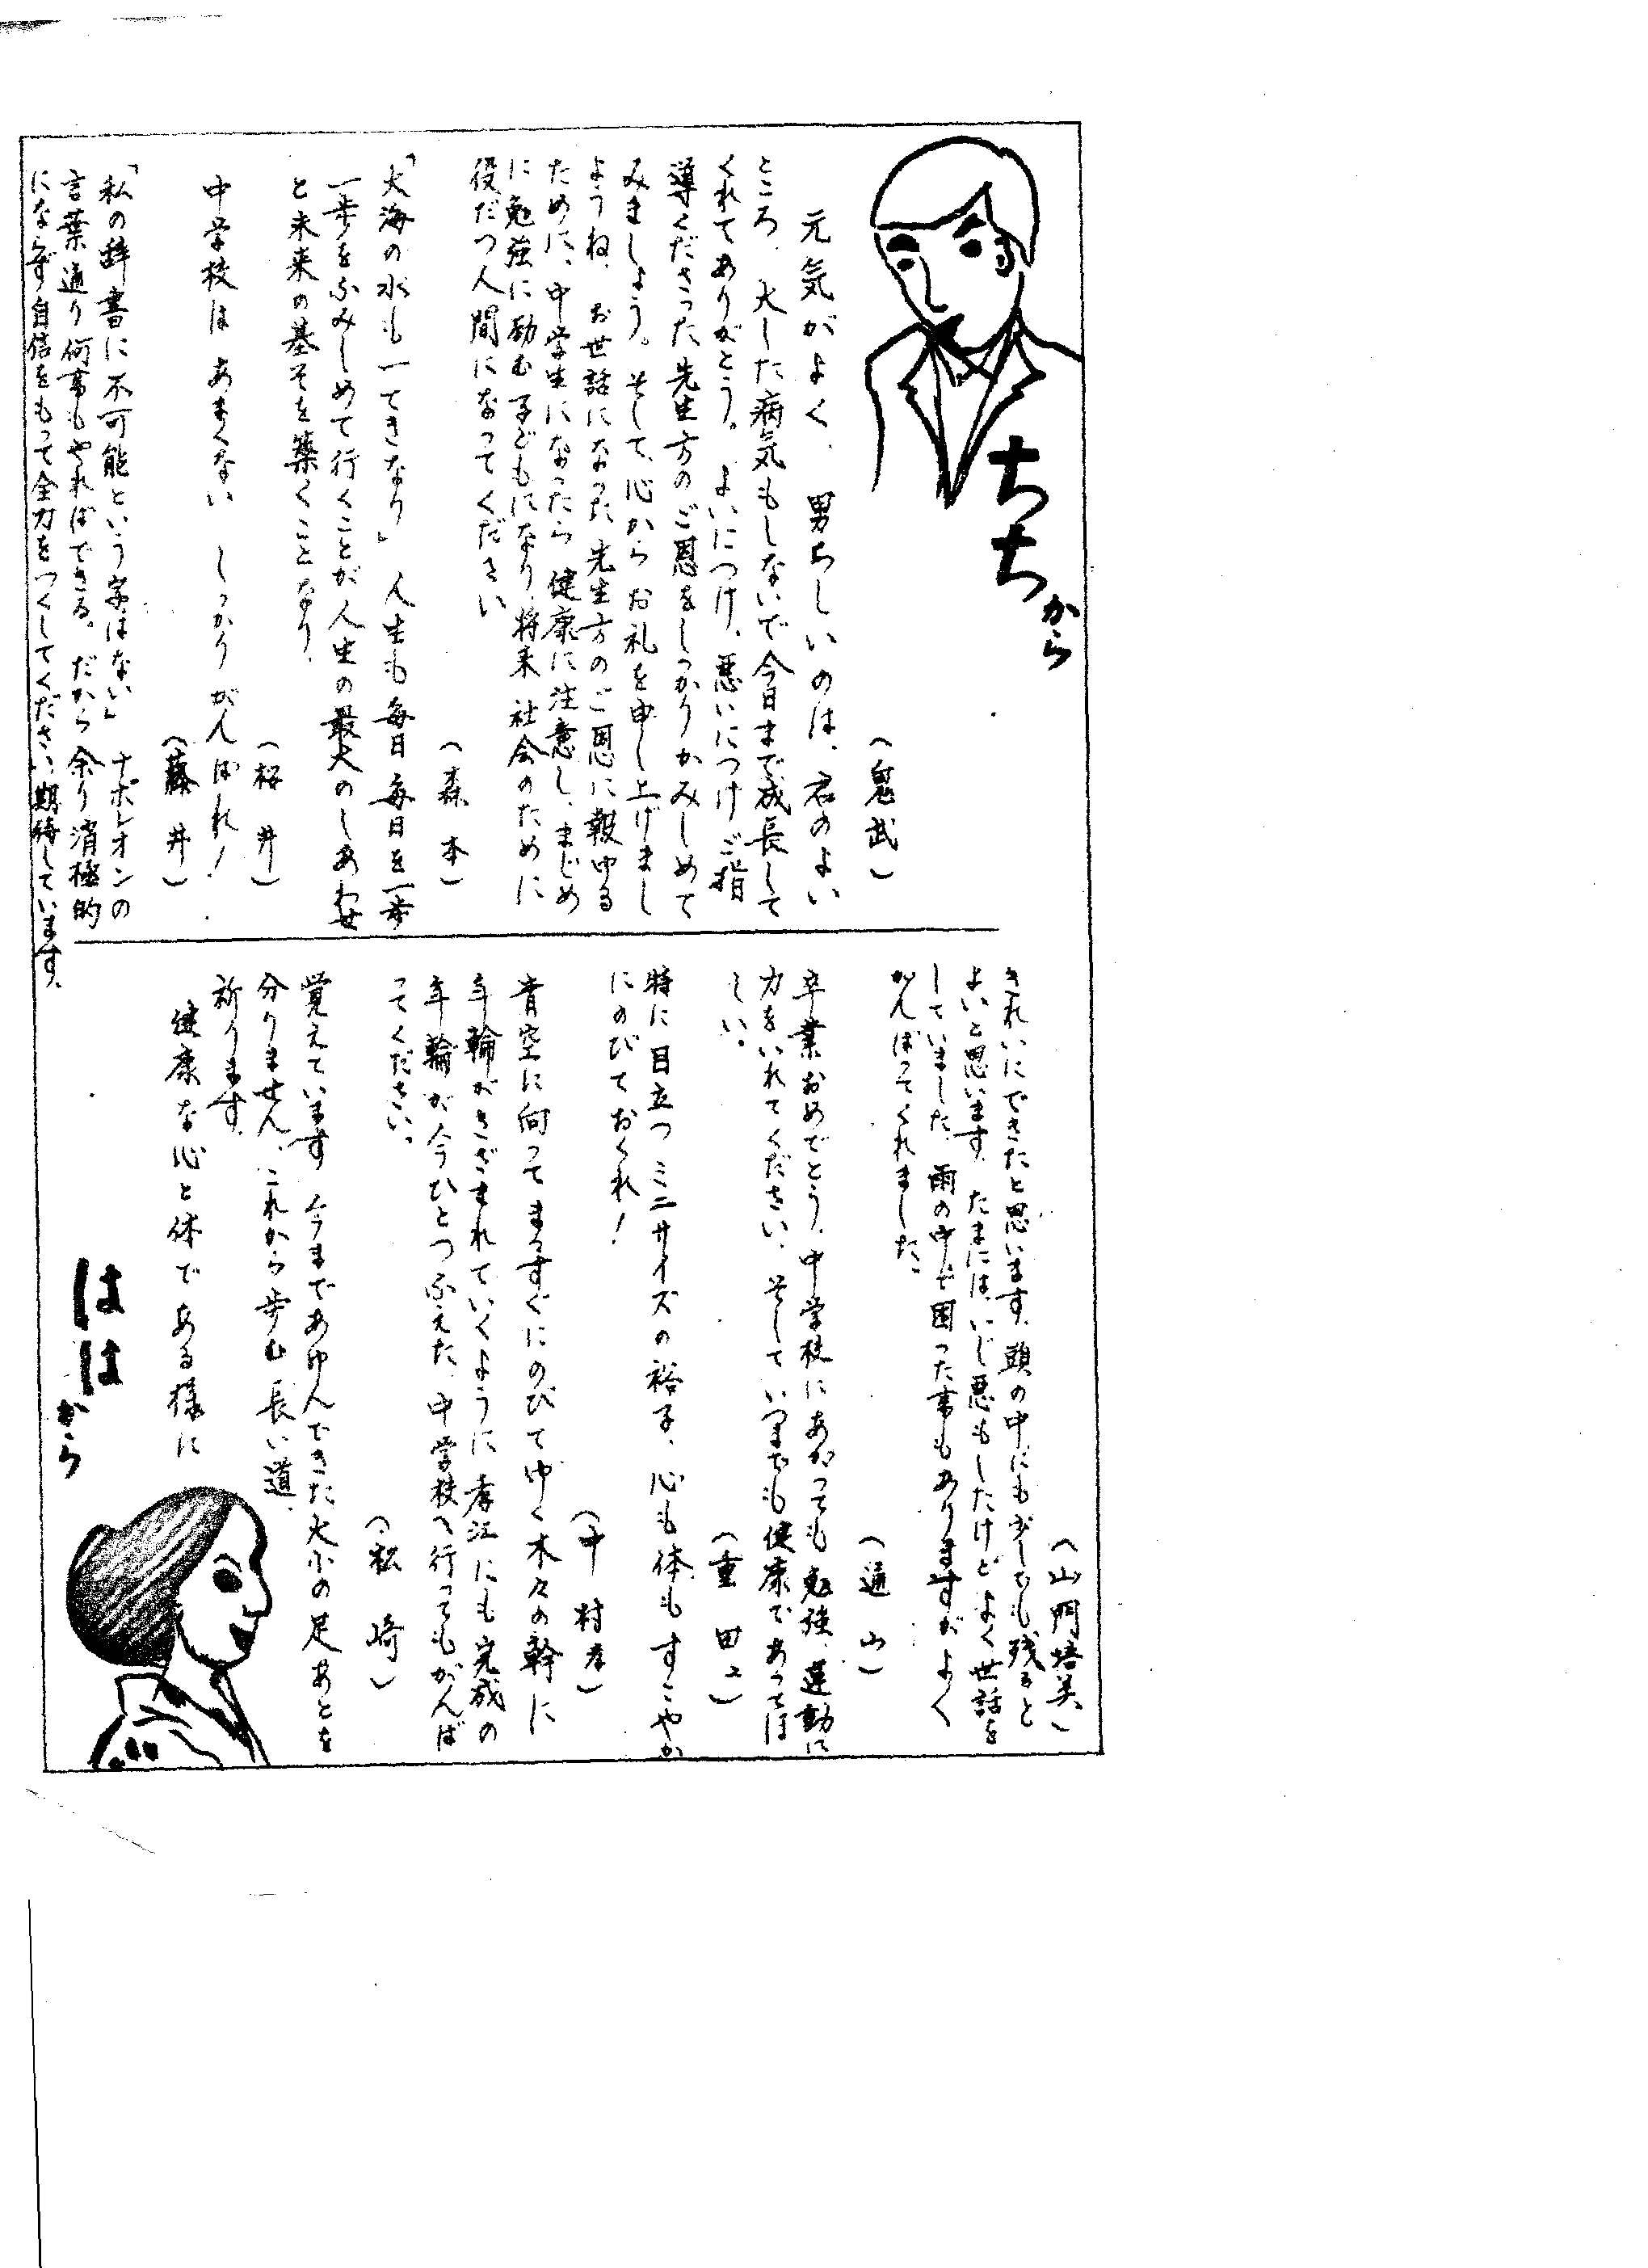 ちちから
（鬼武）
元気がよく、男らしいのは、君のよい
ところ、大した病気もしないで今日まで成長して
くれてありがとう。よいにつけ、悪いにつけご指
導くださった先生方のご恩をしっかりかみしめて
みましょう。そして、心からお礼を申し上げまし
ようね、お世話になった先生方のご恩に報ゆる
ために、中学生になったら健康に注意し、まじめ
に勉強に励む子どもになり、将来社会のために
役だつ人間になってください
（森本）
「大海の水も一てきなり」人生も毎日毎日を一歩
一歩をふみしめて行くことが人生の最大のしあわせ
と未来の基そを築くことなり、
（桜井）
中学校はあまくないしっかりがんばれ！
（藤井）
「私の辞書に不可能という字はない」ナポレオンの
言葉通り何事もやればできる。だから余り消極的
にならず自信をもって全力をつくしてください、期待しています、
（山門培美）
きれいにできたと思います、頭の中にも少しでも残ると
よいと思います、たまには、いじ悪もしたけどよく世話を
していました、雨の中で困った事もありますがよく
がんばってくれました、
（通山）
卒業おめでとう、中学校にあがっても勉強、運動に
力をいれてください、そしていつまでも健康であってほ
しい。
（重田）
特に目立つミニサイズの裕子、心も体もすこやか
にのびておくれ！
（中村孝）
青空に向ってまっすぐにのびてゆく木々の幹に
年輪がきざまれていくように孝江にも完成の
年輪が今ひとつふえた、中学校へ行ってもがんば
ってください。
（松崎）
覚えています今まであゆんできた大小の足あとを
分りません、これから歩む長い道、
祈ります、
健康な心と体である様に
ははから